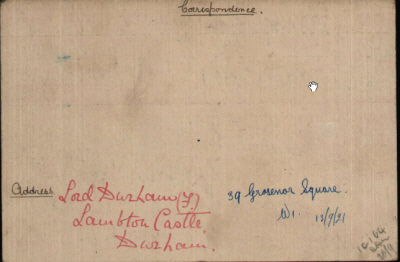 Correspondence.
Address Lord Durham (F.)
Lambton Castle
Durham.
39 Grosenor Square.
W1. 12/9/21